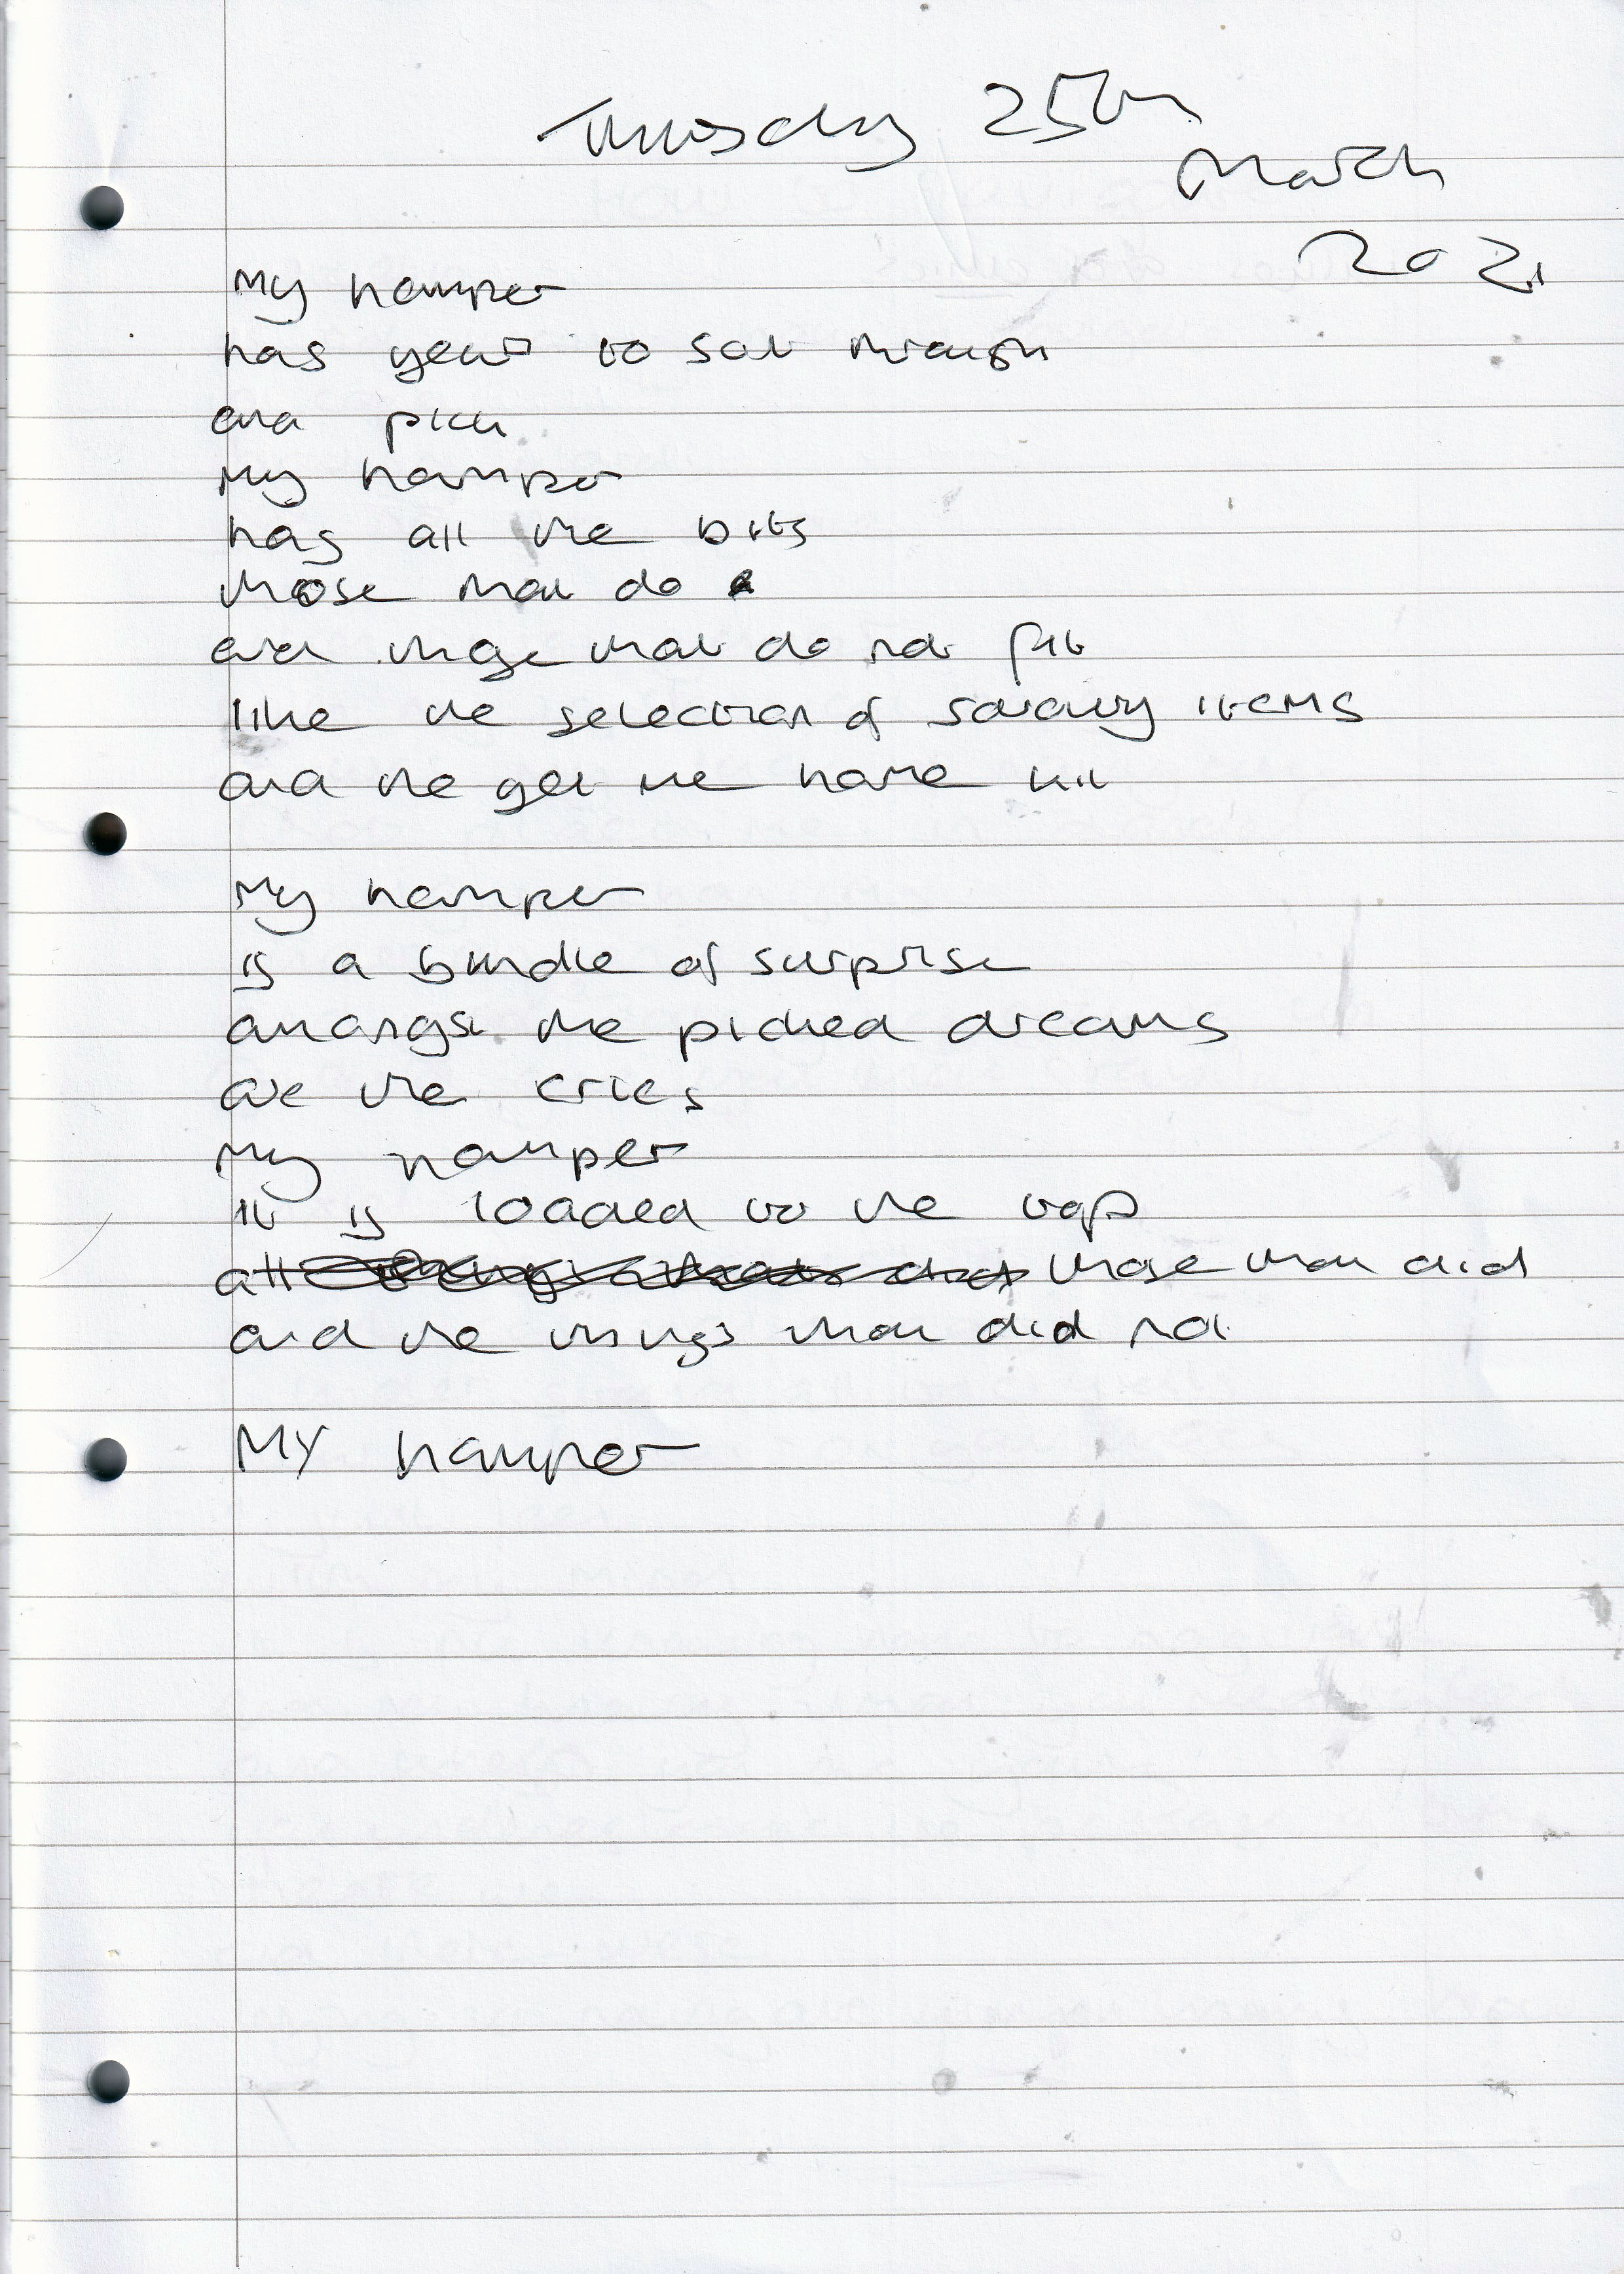 Thursday 25th
March
2021
My hamper
has years to sort through
and pick
My hamper
has all the bits
those that do
and those that do not fit
like the selection of savoury items
and the get me home kit
My hamper
is a bundle of surprise
amongst the picked dreams
are the cries
My hamper
it is loaded to the top
all those that did
and the things that did not
My hamper